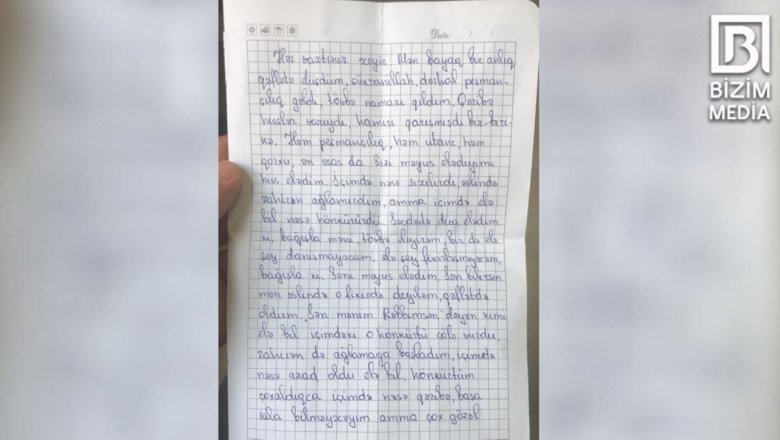 Date: / /
BIZIM
MEDIA
Hər vaxtınız xeyir. Mən bayaq bir anlıq
qəflətə düşdüm, şükranillah, dərhal peşman-
çılıq gəldi, tövbə namazı qıldım. Qəribə
hisslər varıydı, hamısı qarışmışdı bir-biri-
nə. Həm peşmançılıq, həm utanc, həm
qorxu, ən əsas da Sizi məyus elədiyimi
hiss elədim. İçimdə nəsə sıxılırdı, əslində
zahirən ağlamırdım, amma içimdə elə
bil nəsə hönkürürdü. Səcdədə dua elədim
ki, bağışla məni, tövbə deyirəm, bir də elə
şey danışmayacam, elə şey fikirləşməyəcəm,
bağışla ki, Səni məyus elədim. Sən bilirsən
mən əslində o fikirdə deyiləm, qəflətdə
oldum. Sən mənim Rəbbimsən deyən kimi
elə bil içimdəki o hönkürtü çölə vurdu,
zahirən də ağlamağa başladım, içimdə
nəsə azad oldu elə bil, hönkürtüm
çoxaldıqca içimdə nəsə qəribə, başa
sala bilməyəcəyim amma çox gözəl